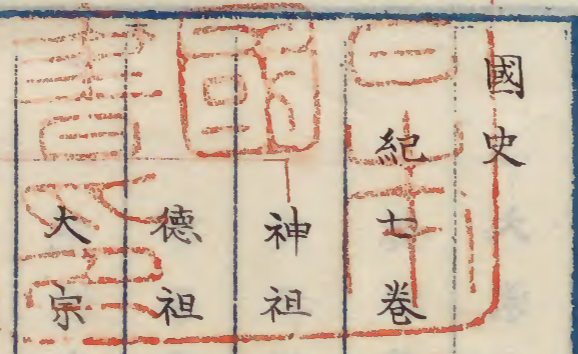 國史
紀七巻
神祖
德祖
大宗